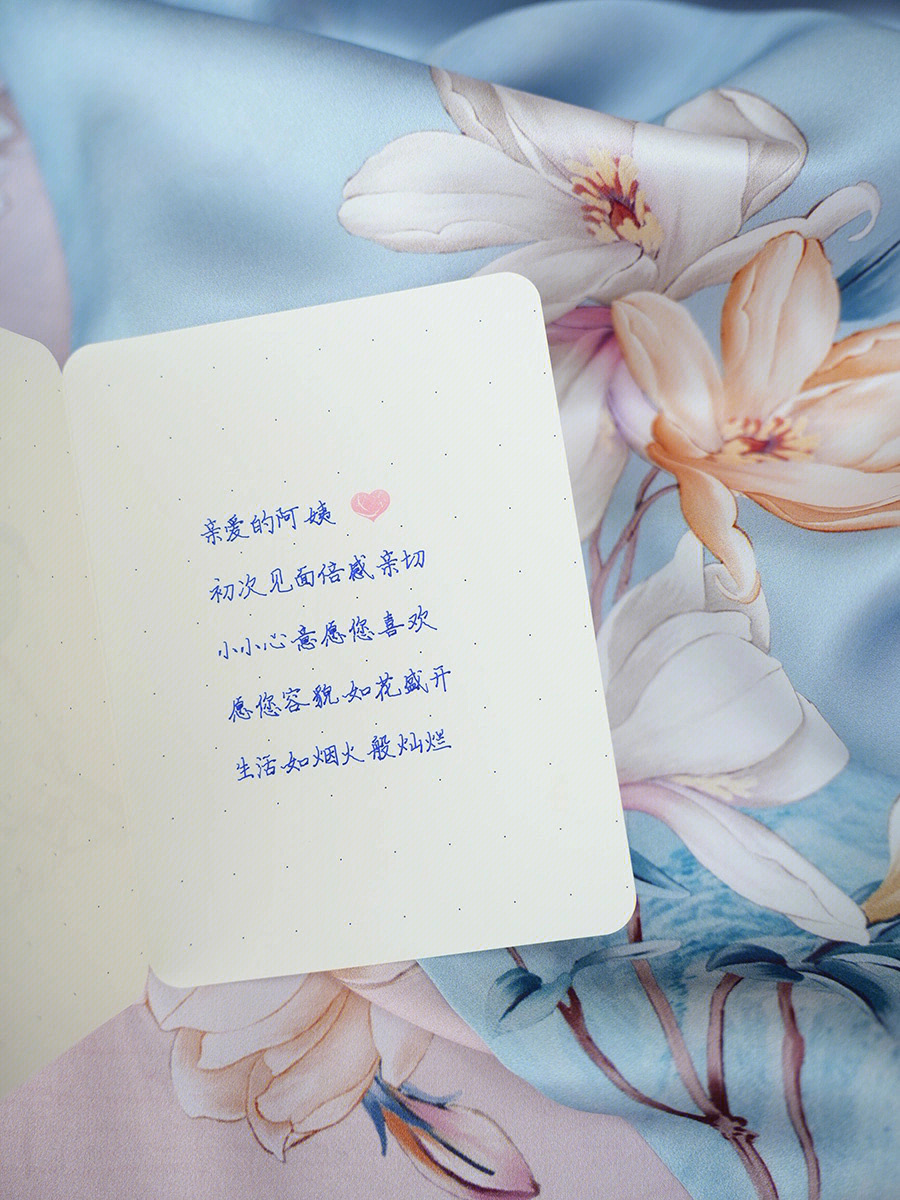 亲爱的阿姨
初次见面倍感亲切
小小心意愿您喜欢
愿您容貌如花盛开
生活如烟火般灿烂